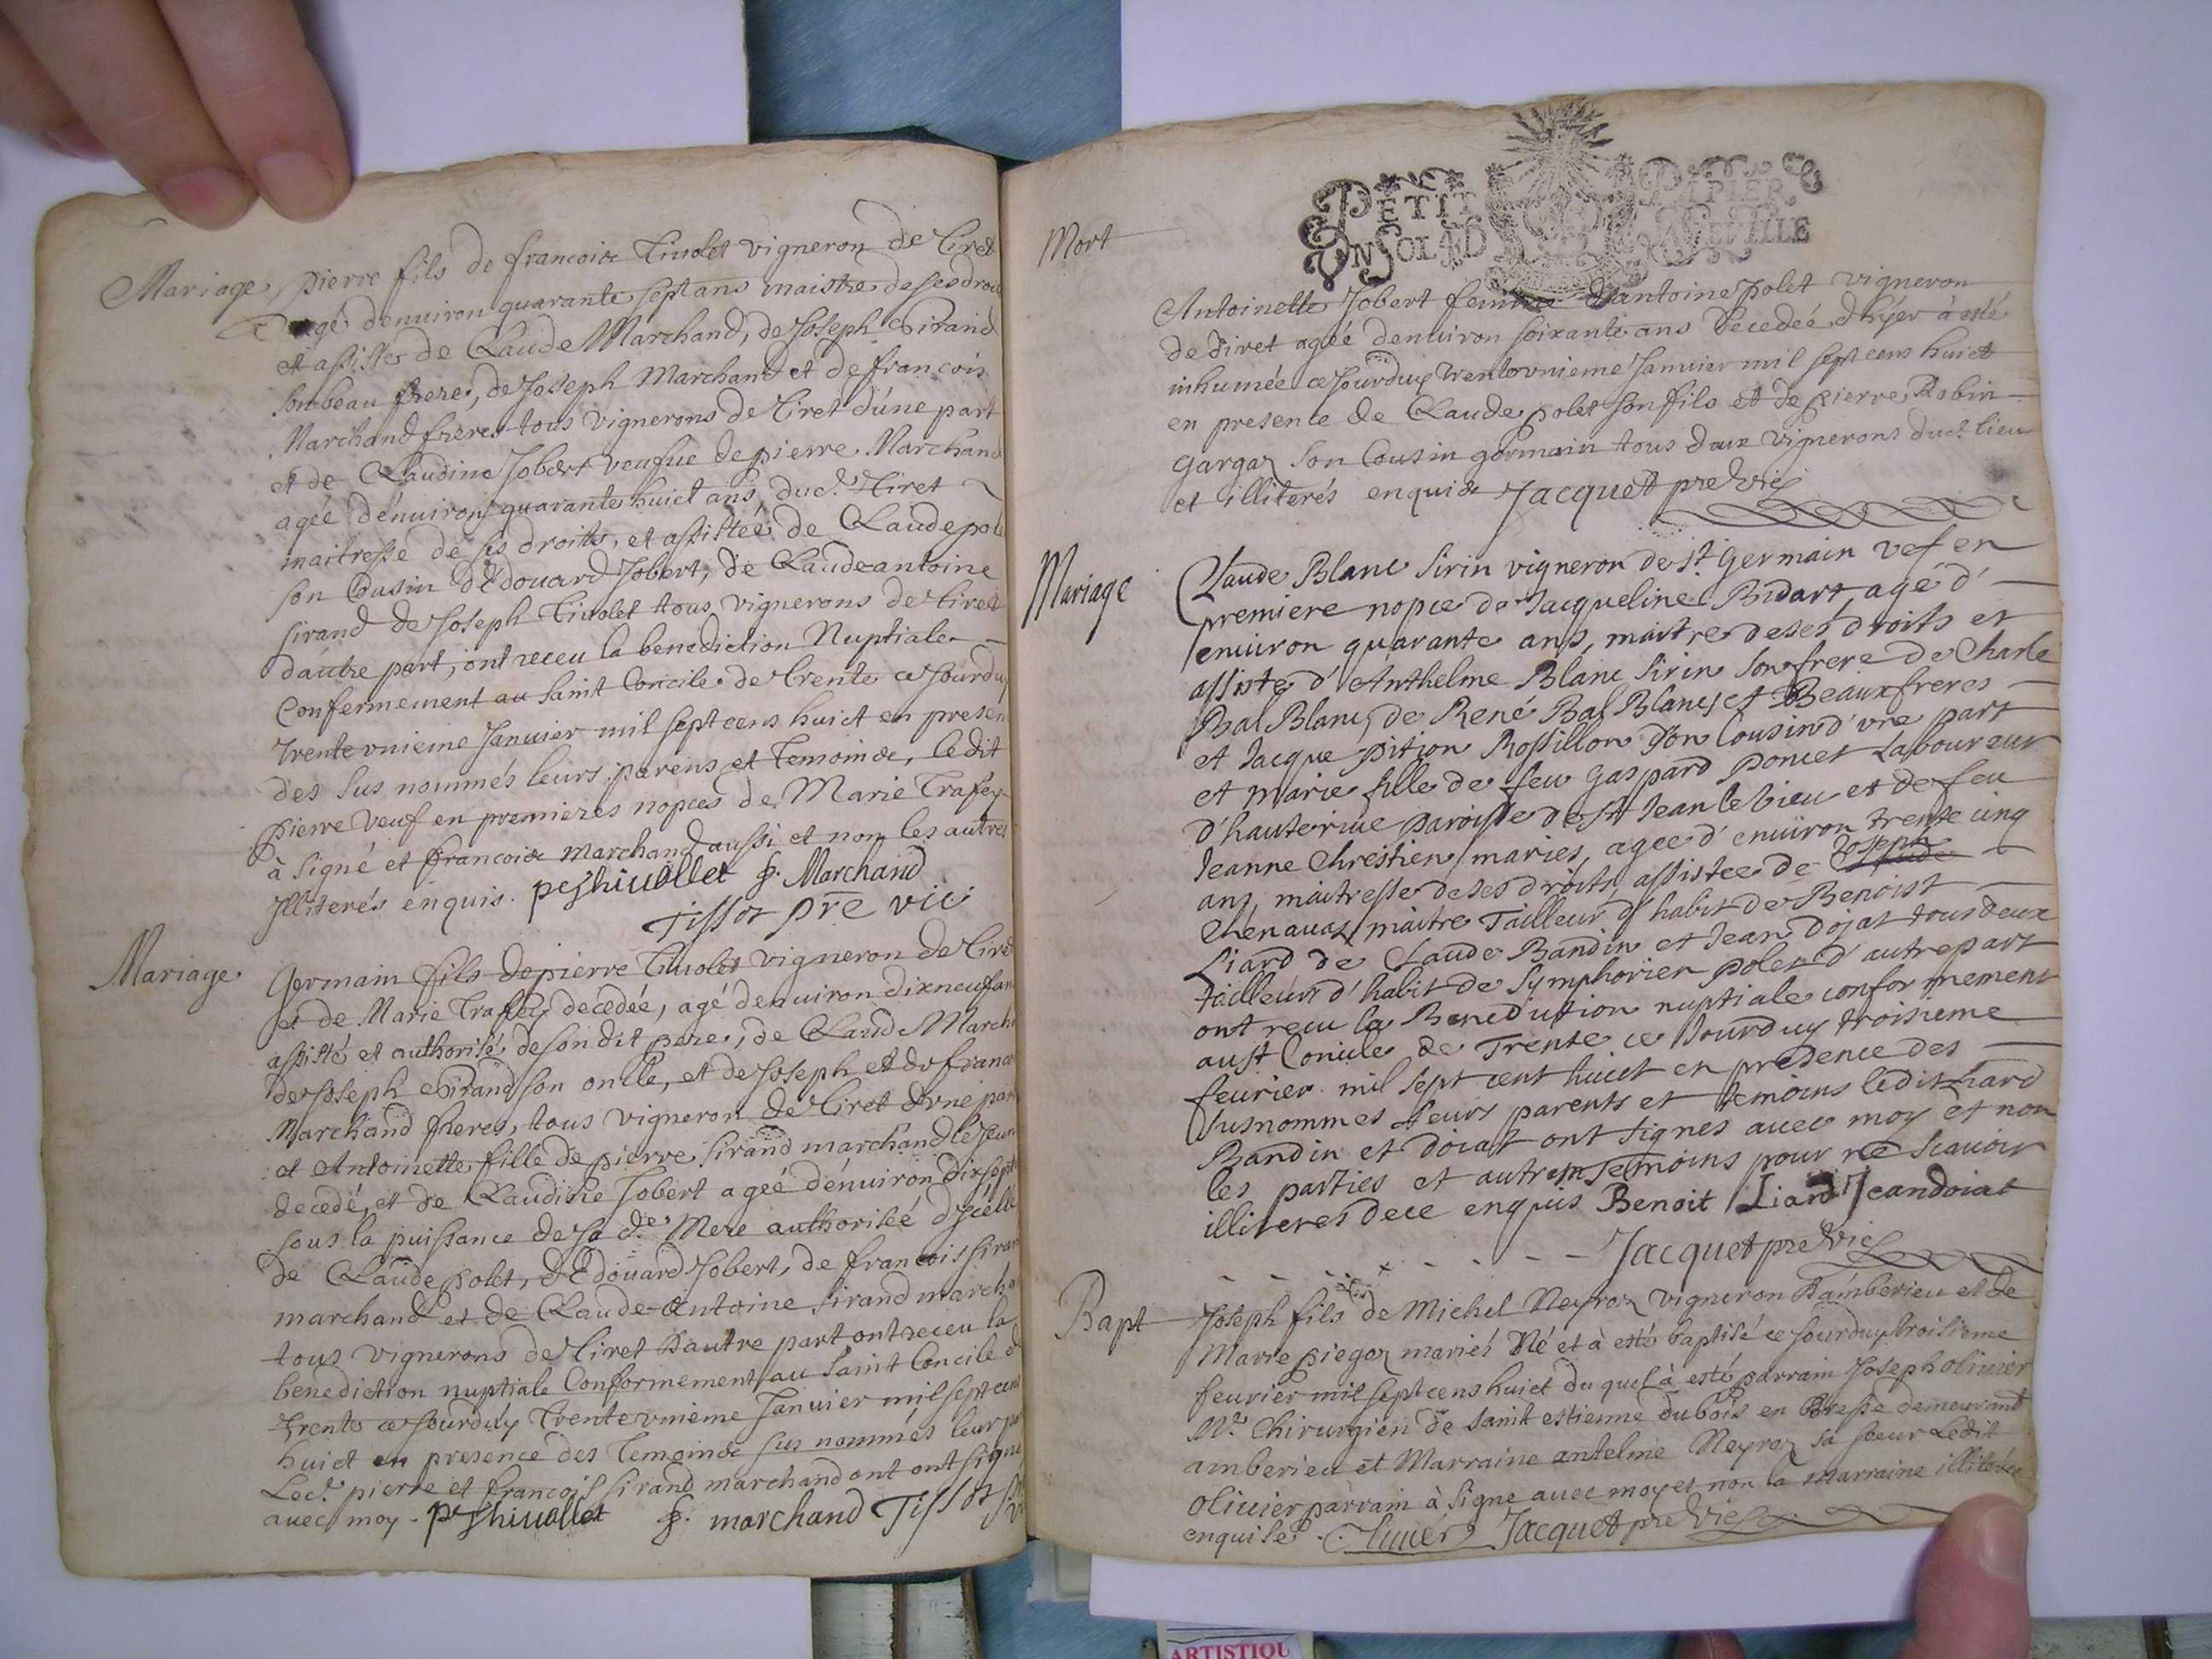 Mariage
pierre fils de francois Tiuolet vigneron de Tiret
agé denuiron quarante sept ans maistre de ses droits
et assisté de Claude Marchand, de Joseph Girand
son beau frere, de Joseph Marchand et de francois
Marchand freres tous vignerons de Tiret d'une part
et de Claudine Jobert veufue de pierre Marchand
agée dénuiron quarante huict ans, dud. Tiret
maitresse de ses droits, et assistée de Claude polet
son Cousin d'Edouard Jobert, de Claude antoine
sirand de Joseph Tiuolet tous vignerons de Tiret
d'autre part, ont receu la benediction Nuptiale
Confermement au saint Concile de trente ce Jourduy
trente vnieme Januier mil sept cens huict en presence
des sus nommés leurs parens et temoins, ledit
pierre veuf en premieres nopces de Marie Trafey
à signé et francois marchand aussi et non les autres
Illiterés enquis. pe thiuollet f. Marchand
Tissot pre vic
Mariage
Germain fils de pierre Tiuolet vigneron de Tiret
et de Marie Trafey decedée, agé denuiron dix neuf ans
assisté et authorisé de son dit pere, de Claud Marchand
de Joseph Girand son oncle, et de Joseph et de francois
Marchand freres, tous vigneron de Tiret d'vne part
et Antoinette fille de pierre sirand marchand le Jeune
decedé, et de Claudine Jobert ageé dénuiron dix sept
sous la puissance de sa de. Mere authorisée d'icelle
de Claude polet, d'Edouard Jobert, de francois sirand
marchand et de Claude Antoine sirand marchand
tous vignerons de Tiret d'autre part ont receu la
benediction nuptiale Conformement au saint Concile de
trente ce Jourduy trente vnieme Januier mil sept cens
huict en presence des temoins sus nommés leur
Led. pierre et francois sirand marchand ont ont signé
avec moy. pe thiuollet f. marchand Tissot
Mort
PETIT PAPIER
UN SOL LA FEUILLE
Antoinette Jobert femme d'antoine polet vigneron
de Tiret ageé denuiron soixante ans decedeé d'hyer à esté
inhumée ce Jourduy trente vnieme Januier mil sept cens huict
en presence de Claude polet son fils et de pierre Robin
gargaz son Cousin germain tous deux vignerons dud. lieu
et illiterés enquis Jacquet pre vic
Mariage
Claude Blanc sirin vigneron de st germain vef en
premiere nopce de Jacqueline Bidart, agé d'
enuiron quarante ans, maitre de ses droits et
assisté d'Anthelme Blanc sirin son frere de Charle
Bal Blanc, de René Bal Blanc, et Beaux freres
et Jacque pition Rossillon son Cousin d'vne part
et marie fille de feu gaspard poncet Laboureur
d'hauteriue paroisse de st Jean le vieu et de feu
Jeanne Chrestien maries, agee d'enuiron trente cinq
ans, maitresse de ses droits assistee de Joseph
Chenauaz maitre Tailleur d'habit de Benoist
Liard de Claude Bandin et Jean dojat tous deux
tailleurs d'habit de Symphorien polet d'autre part
ont recu la Benediction nuptiale conformement
au st Concile de Trente ce Jourduy troisieme
feurier mil sept cent huict en presence des
susnommes leurs parents et temoins ledit Liard
Bandin et doiat ont signes auec moy et non
les parties et autres temoins pour ne scauoir
illiteres de ce enquis Benoit Liard Jean doiat
Jacquet pre vic
Bapt
Joseph fils de Michel Neyroz vigneron d'amberieu et de
Marie piegoz mariés Né et à esté baptisé ce Jourduy troisieme
feurier mil sept cens huict du quel à esté parrain Joseph oliuier
Me. Chirurgien de saint estienne dubois en Bresse demeurant
amberieu et Marraine antelme Neyroz sa soeur Ledit
oliuier parrain à signe auec moy et non la marraine illiterée
enquise. Oliuier Jacquet pre vic
ARTISTIQU